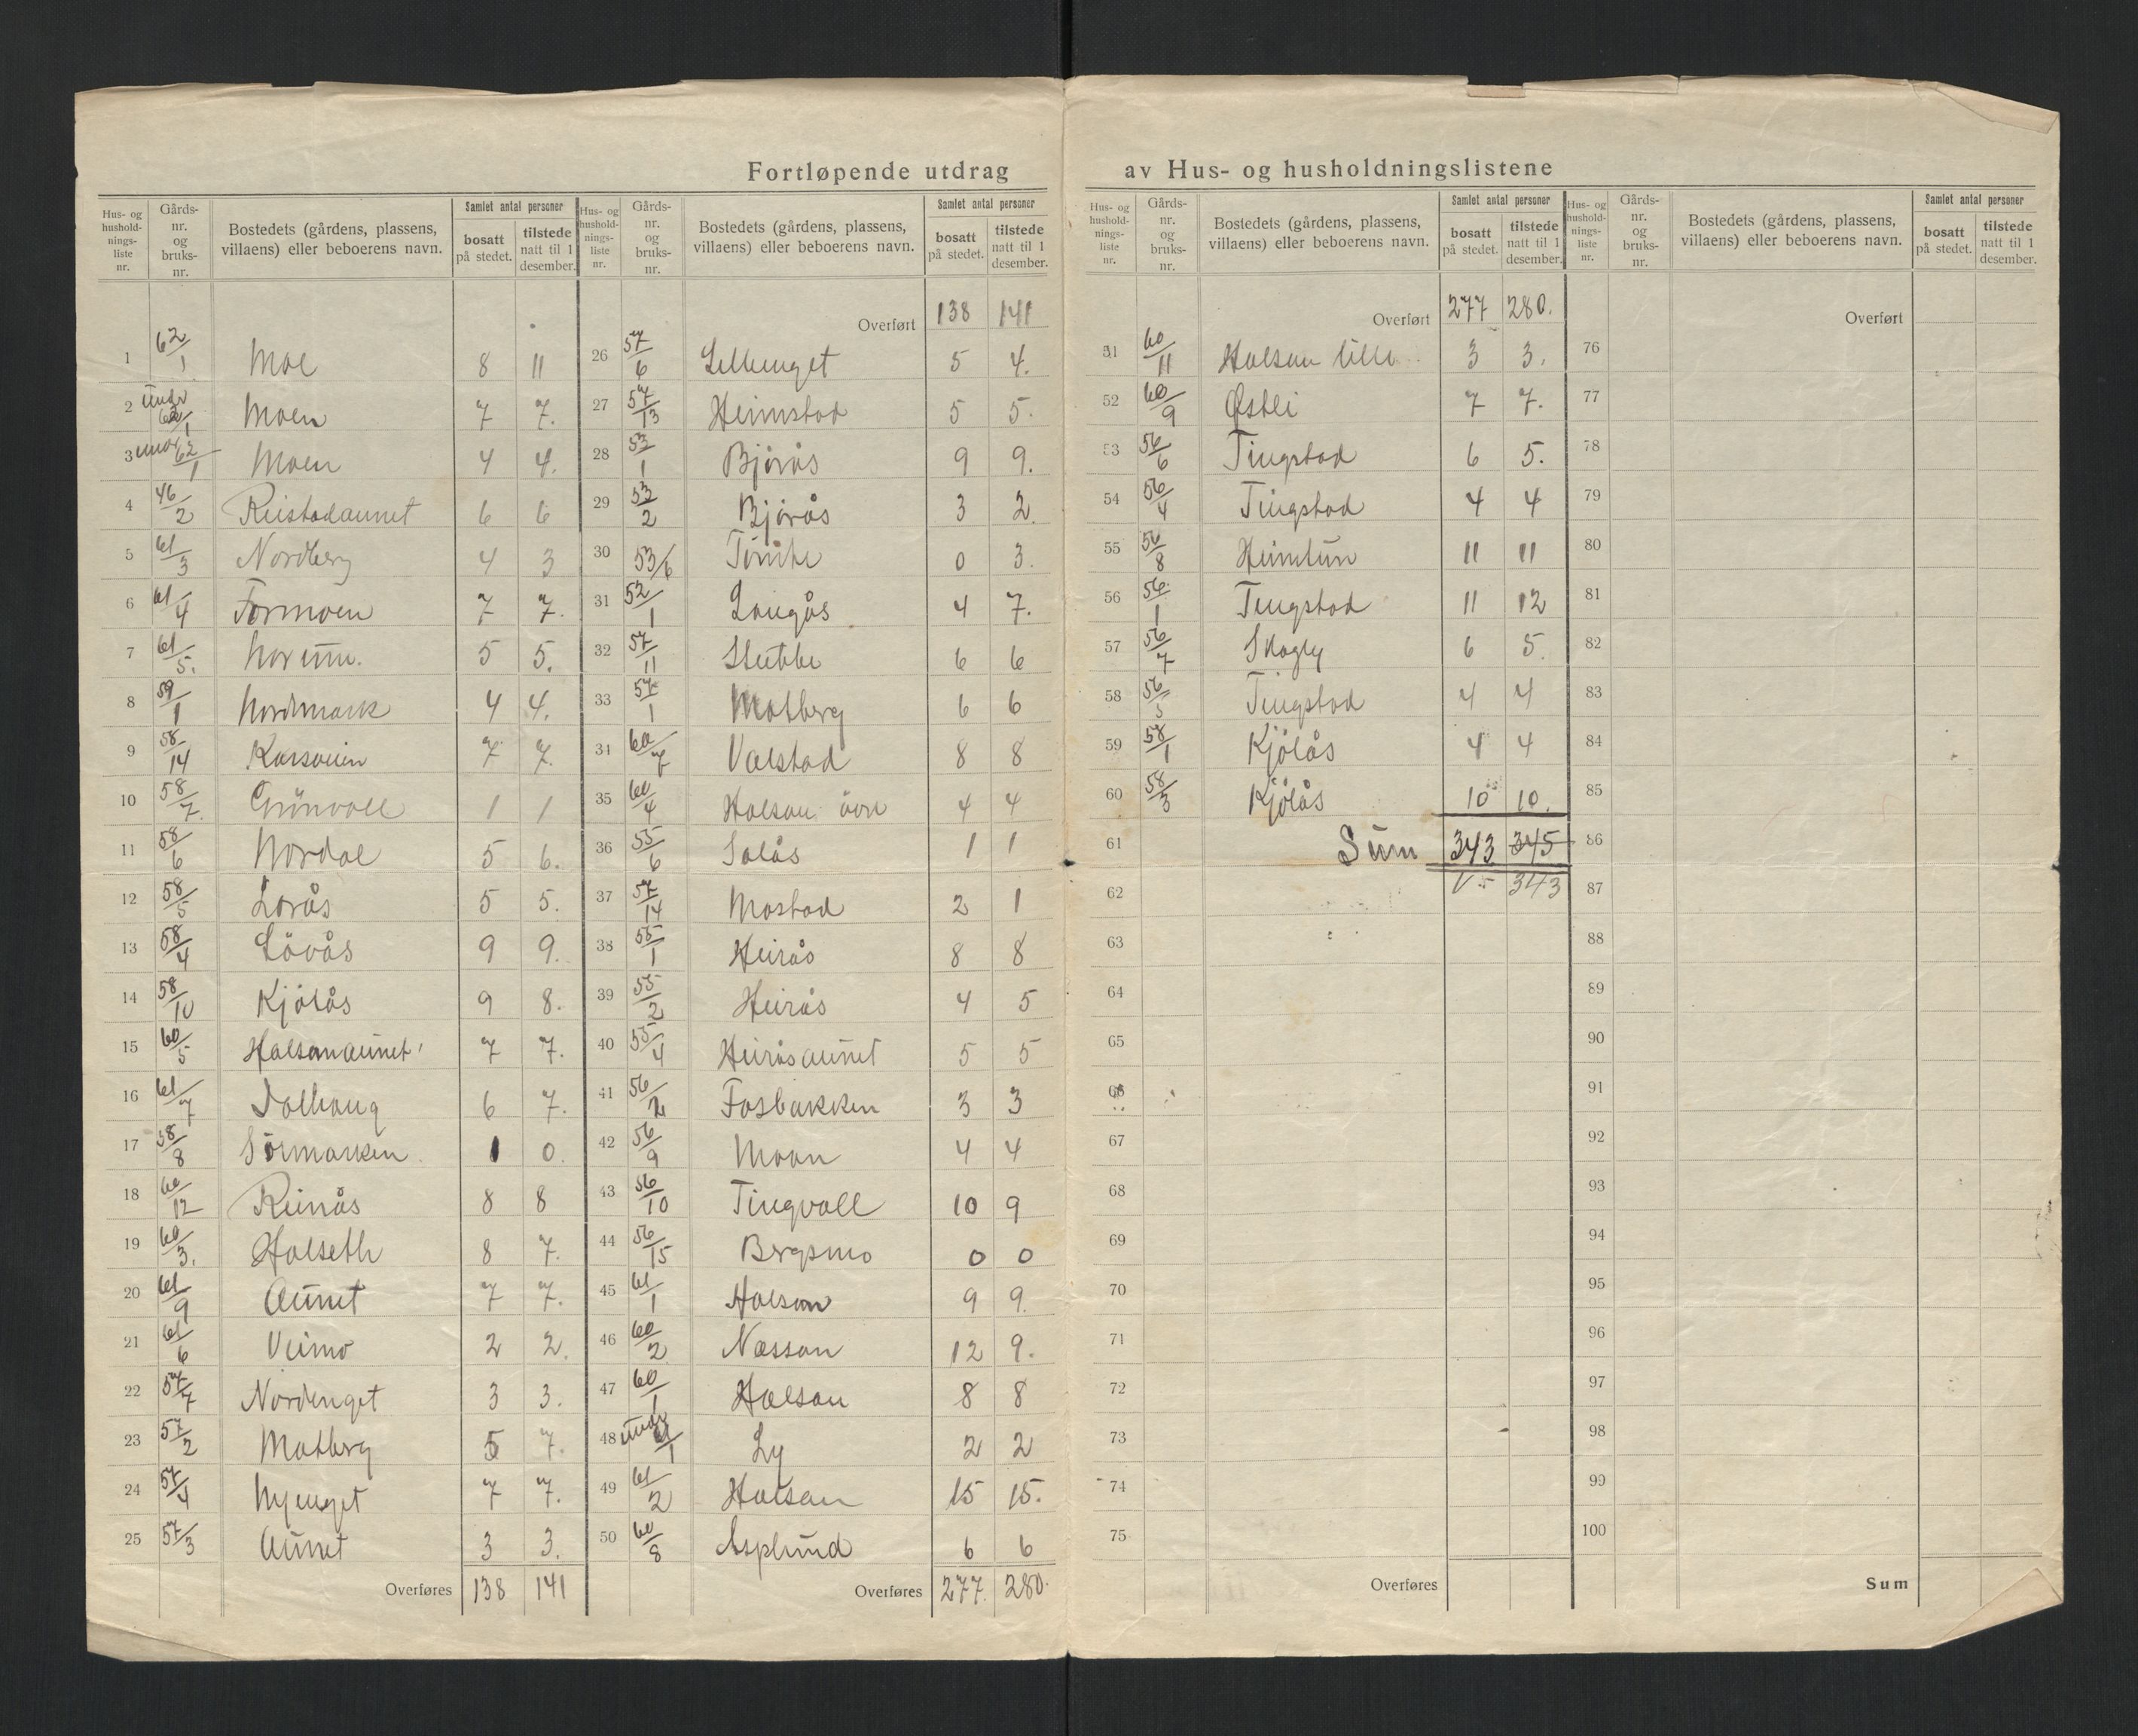 Fortløpende utdrag av Hus- og husholdningslistene
Hus- og husholdnings-liste nr. | Gårds-nr. og bruks-nr. | Bostedets (gårdens, plassens, villaens) eller beboerens navn. | Samlet antal personer bosatt på stedet. | tilstede natt til 1 desember.
1 62/1 Moe 8 11
2 under 62/1 Moen 7 7.
3 under 62/1 Moen 4 4.
4 46/2 Reistadaunet 6 6
5 61/3 Nordberg 4 3
6 61/4 Formoen 7 7.
7 61/5. Norum. 5 5.
8 59/1 Nordmark 4 4.
9 58/14 7 7.
10 58/7. Grönvoll 1 1
11 58/6 Nordal 5 6.
12 58/5 Lorås 5 5.
13 58/4 Lövås 9 9.
14 58/10 Kjölås 9 8.
15 60/5 Halsanaunet 7 7.
16 61/7 Solhaug 6 7.
17 58/8 Sörmarken 1 0.
18 60/12 Reinås 8 8
19 60/3. Halseth 8 7.
20 61/9 Aunet 7 7.
21 61/6 Veimo 2 2.
22 57/7 Nordenget 3 3.
23 57/2 Matberg 5 7.
24 57/4 Nyenget 7 7.
25 57/3 Aunet 3 3.
Overføres 138 141
Hus- og husholdnings-liste nr. | Gårds-nr. og bruks-nr. | Bostedets (gårdens, plassens, villaens) eller beboerens navn. | Samlet antal personer bosatt på stedet. | tilstede natt til 1 desember.
Overført 138 141
26 57/6 Lillenget 5 4.
27 57/13 Heimstad 5 5.
28 53/1 Bjørås 9 9.
29 53/2 Bjørås 3 2.
30 53/6 0 3.
31 52/1 Langås 4 7.
32 57/11 Stubbe 6 6
33 57/1 Matberg 6 6
34 60/7 Valstad 8 8
35 60/4 Halsan övre 4 4
36 55/6 Solås 1 1
37 57/14 Mostad 2 1
38 55/1 Heirås 8 8
39 55/2 Heirås 4 5
40 55/4 Heiråsaunet 5 5
41 56/2 Fosbakken 3 3
42 56/9 Moan 4 4
43 56/10 Tingvoll 10 9
44 56/15 Bergsmo 0 0
45 61/1 Halsan 9 9.
46 60/2 Næssan 12 9.
47 60/1 Halsan 8 8
48 under 61/1 Ly 2 2
49 61/2 Halsan 15 15.
50 60/8 Asplund 6 6
Overføres 277. 280.
Hus- og husholdnings-liste nr. | Gårds-nr. og bruks-nr. | Bostedets (gårdens, plassens, villaens) eller beboerens navn. | Samlet antal personer bosatt på stedet. | tilstede natt til 1 desember.
Overført 277 280.
51 60/11 Halsan lille 3 3.
52 60/9 Østli 7 7.
53 56/6 Tingstad 6 5.
54 56/4 Tingstad 4 4
55 56/8 Heimtun 11 11
56 56/1 Tingstad 11 12
57 56/7 Skogly 6 5.
58 56/5 Tingstad 4 4
59 58/1 Kjølås 4 4
60 58/3 Kjølås 10 10.
61 Sum 343 345
62 343
63
64
65
66
67
68
69
70
71
72
73
74
75
Overføres
Hus- og husholdnings-liste nr. | Gårds-nr. og bruks-nr. | Bostedets (gårdens, plassens, villaens) eller beboerens navn. | Samlet antal personer bosatt på stedet. | tilstede natt til 1 desember.
Overført
76
77
78
79
80
81
82
83
84
85
86
87
88
89
90
91
92
93
94
95
96
97
98
99
100
Sum